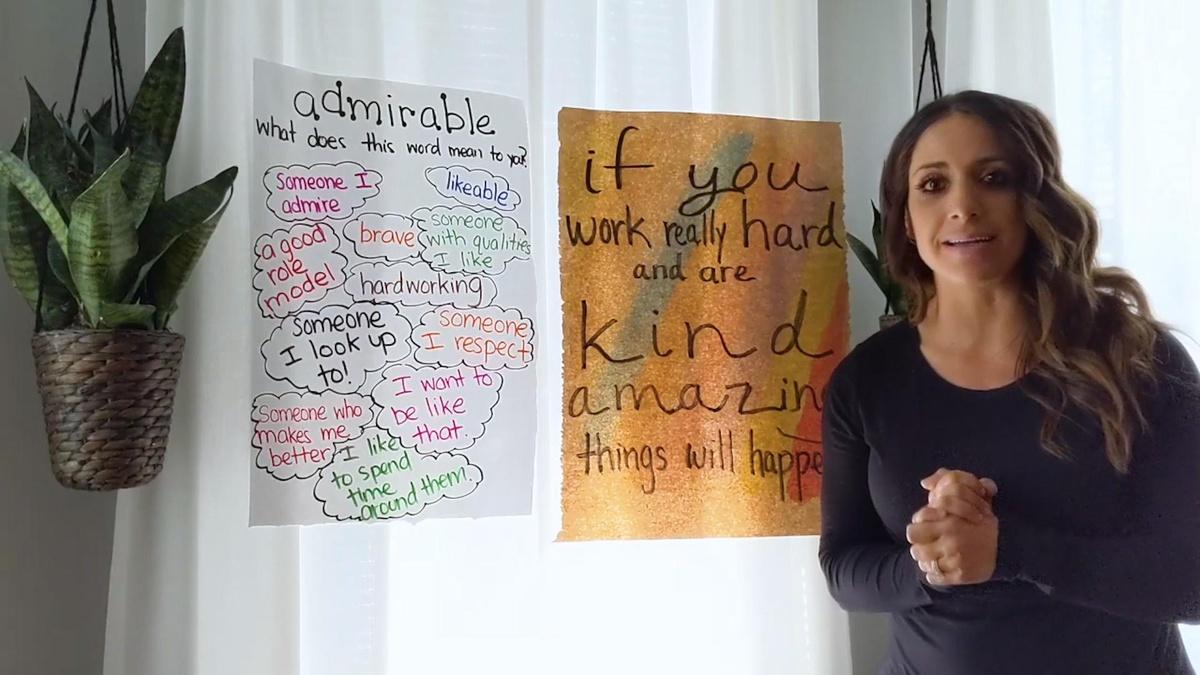 admirable
what does this word mean to you?
someone I
admire
likeable
a good
role
model
brave
someone
with qualities
I like
hardworking
someone
I look up
to!
someone
I respect
I want to
be like
that.
Someone who
makes me
better
I like
to spend
time
around them.
if you
work really hard
and are
kind
amazin
things will happe